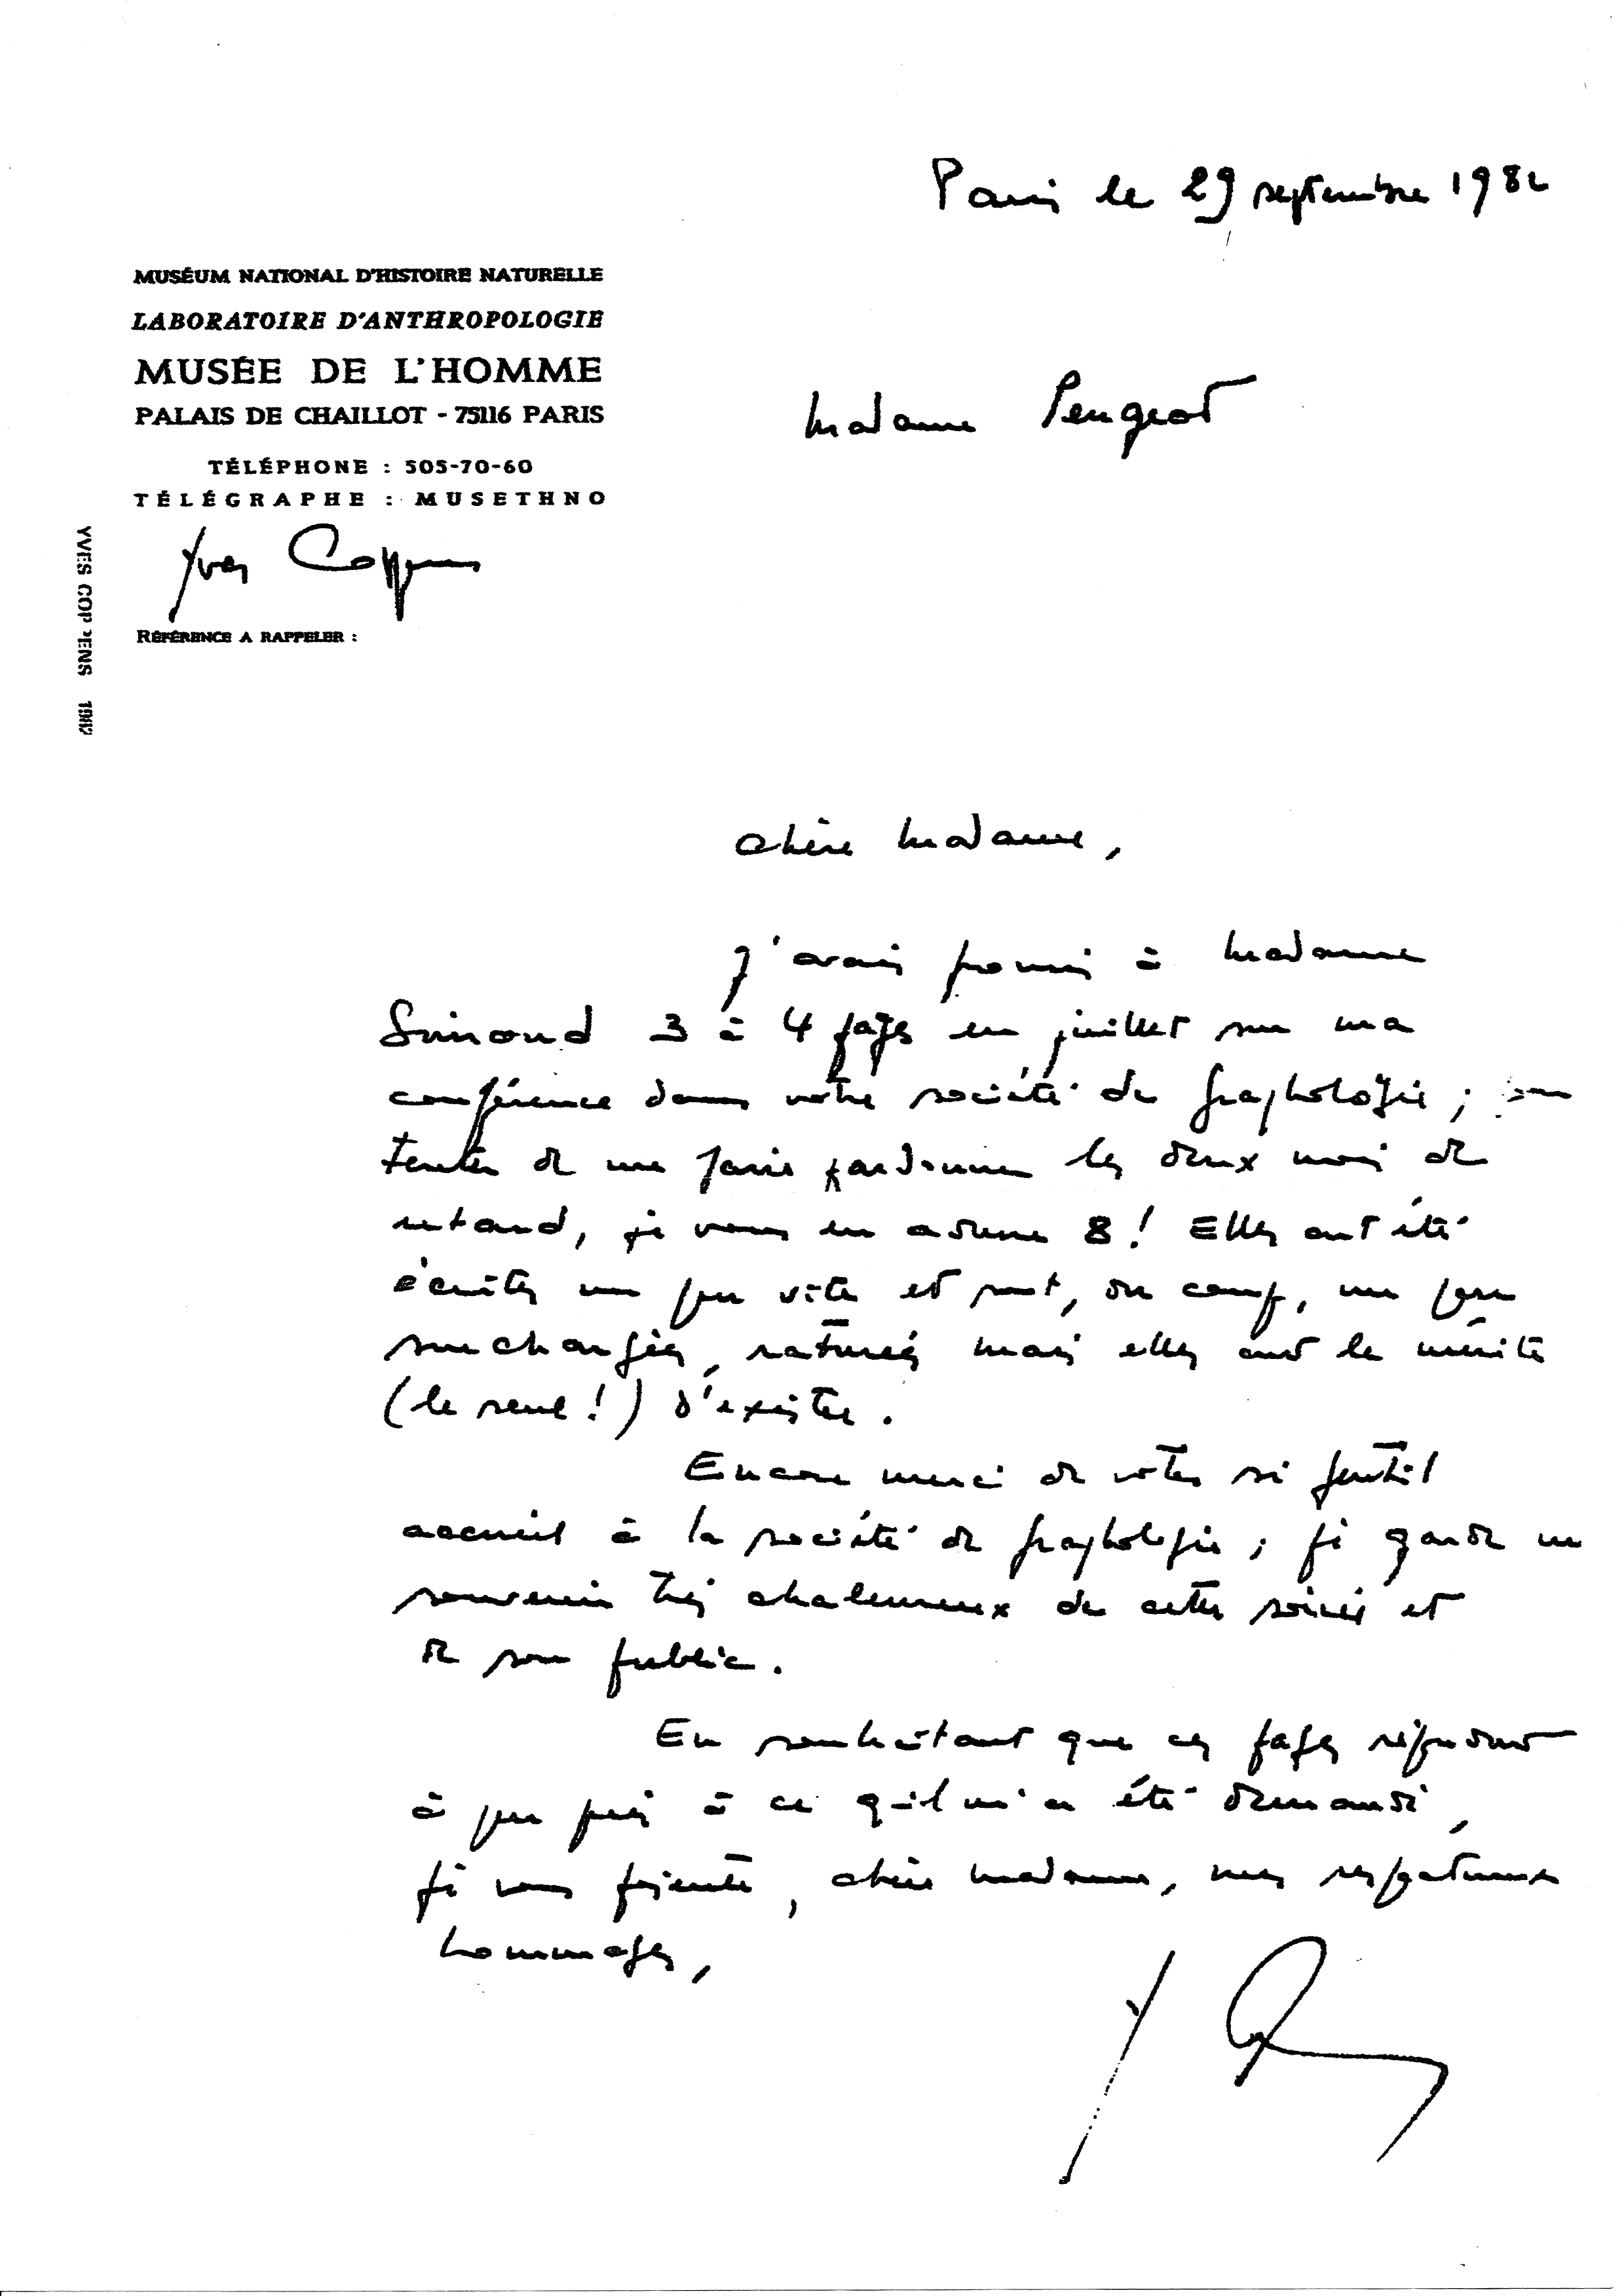 Paris le 29 septembre 1982
MUSÉUM NATIONAL D'HISTOIRE NATURELLE
LABORATOIRE D'ANTHROPOLOGIE
MUSÉE DE L'HOMME
PALAIS DE CHAILLOT - 75116 PARIS
TÉLÉPHONE : 505-70-60
TÉLÉGRAPHE : MUSETHNO
Yves Coppens
RÉFÉRENCE A RAPPELER :
YVES COPPENS 1982
Madame Peugeot
Chère Madame,
J'avais promis à Madame
3 à 4 pages en juillet sur ma
conférence dans votre société de graphologie ;
tenter de me faire pardonner les deux mois de
retard, je vous en adresse 8 ! Elles ont été
écrites un peu vite et sont, du coup, un peu
surchargées, raturées mais elles ont le mérite
(le seul !) d'exister.
Encore merci de votre si gentil
accueil à la société de graphologie ; je garde un
souvenir très chaleureux de cette soirée et
de son public.
En souhaitant que ces pages répondront
à peu près à ce qu'il m'a été demandé,
je vous présente, chère Madame, mes respectueux
hommages,